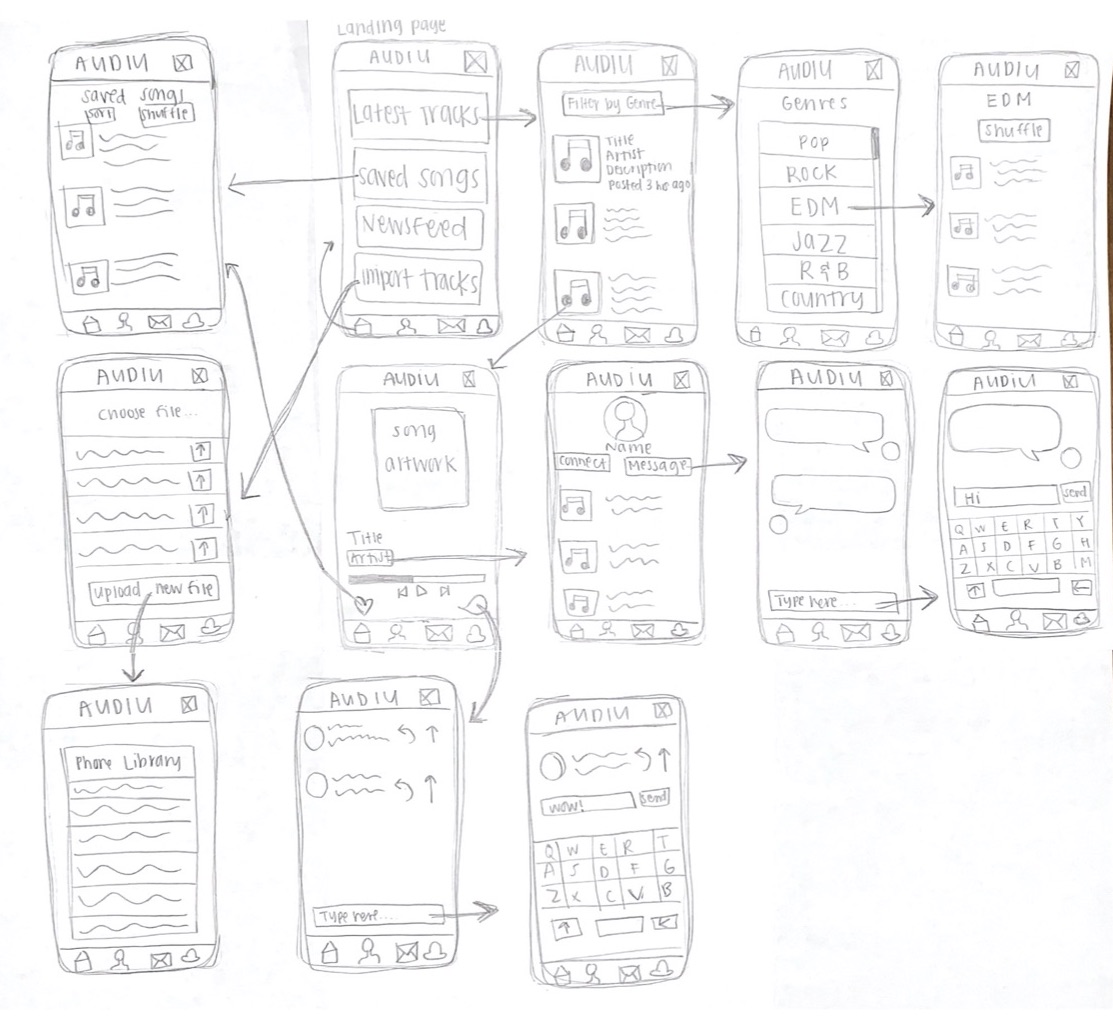 Landing page
AUDIU
saved songs
sort shuffle
AUDIU
Latest Tracks
saved songs
Newsfeed
import tracks
AUDIU
Filter by Genre
Title
Artist
Description
Posted 3 hr ago
AUDIU
Genres
POP
ROCK
EDM
Jazz
R & B
Country
AUDIU
EDM
Shuffle
AUDIU
Choose file...
upload new file
AUDIU
song
artwork
Title
Artist
AUDIU
Name
Connect Message
AUDIU
Type here...
AUDIU
Hi send
Q W E R T Y
A S D F G H
Z X C V B M
AUDIU
Phone Library
AUDIU
Type here....
AUDIU
wow! send
Q W E R T
A S D F G
Z X C V B